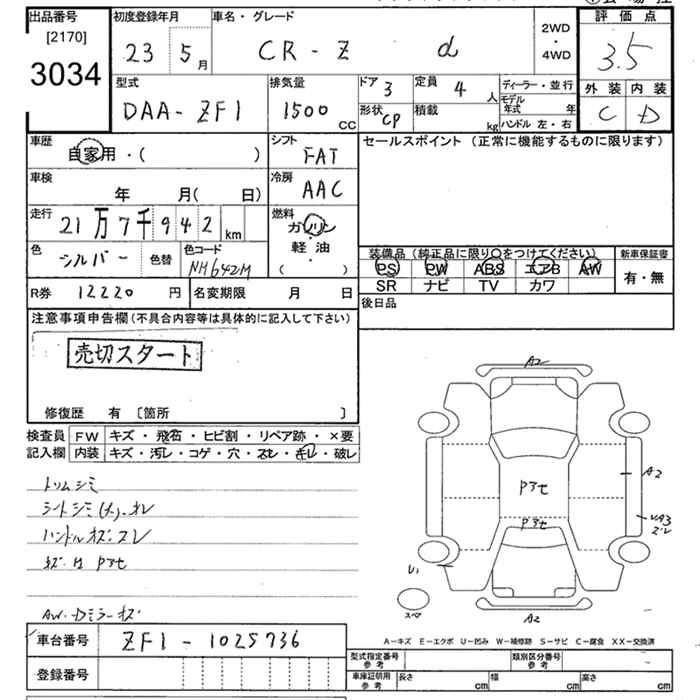 出品番号 [2170] 3034
初度登録年月 23 5月
車名・グレード CR-Z α
2WD・4WD
評価点 3.5
型式 DAA-ZF1
排気量 1500 CC
ドア 3
定員 4人
形状 CP
積載 kg
ディーラー・並行
モデル年式 年
ハンドル 左・右
外装 内装
C D
車歴 自家用・( )
シフト FAT
セールスポイント (正常に機能するものに限ります)
車検 年 月( 日)
冷房 AAC
走行 21万7千942km
燃料 ガソリン
軽・油
( )
色 シルバー 色替
色コード NH642M
装備品(純正品に限り〇をつけてください)
新車保証書
PS PW ABS エアB AW
有・無
SR ナビ TV カワ
R券 12220円
名変期限 月 日
後日品
注意事項申告欄(不具合内容等は具体的に記入して下さい)
売切スタート
修復歴 有 〔箇所 〕
検査員 FW キズ・飛石・ヒビ割・リペア跡・×要
記入欄 内装 キズ・汚レ・コゲ・穴・スレ・キレ・破レ
トリムシミ
シートシミ(大)
ハンドルキズスレ
AW・Dミラーキズ
A2
Pアセ
Pアセ
A2
U1
スペア
A2
A-キズ E-エクボ U-凹み W-補修跡 S-サビ C-腐食 XX-交換済
車台番号 ZF1-1025736
型式指定番号 参考
類別区分番号 参考
登録番号
車庫証明用 参考 長さ cm 幅 cm 高さ cm